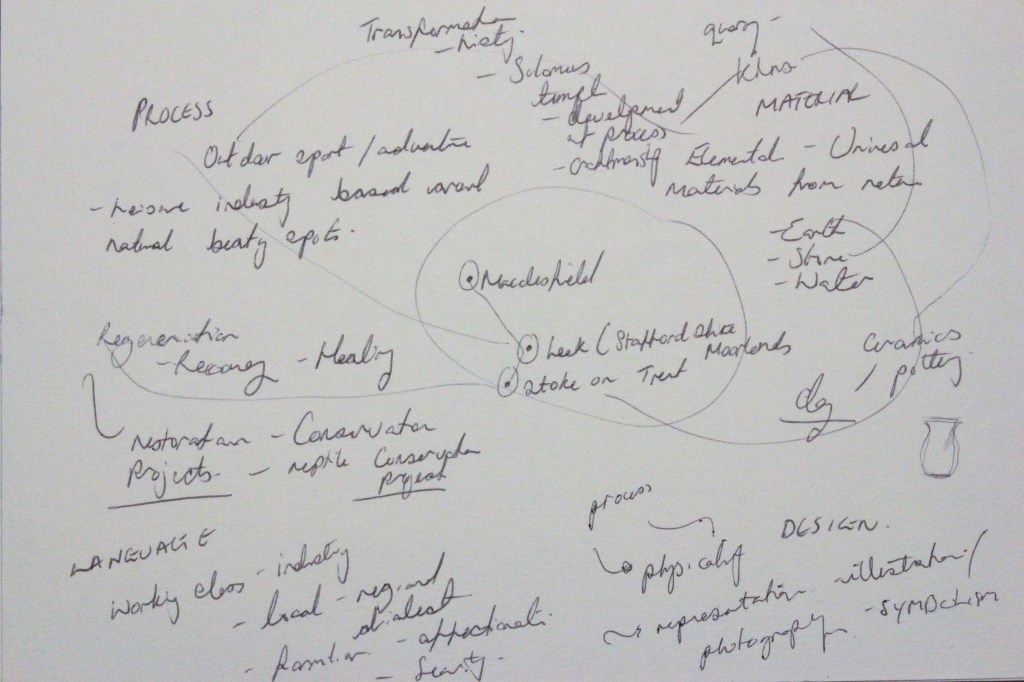 Transformation
- history.
- Solomons
temple
- development
of process
- craftmanship
quarry -
Kilns
MATERIAL
Elemental - Universal
Materials from nature
- Earth
- Stone
- Water
PROCESS
Outdoor sport / adventure
- Leisure industry based around
natural beauty spots.
Macclesfield
Leek (Staffordshire
Moorlands
Stoke on Trent
Ceramics
pottery
Clay
Regeneration
- Recovery - Healing
restoration - Conservation
projects. - reptile Conservation
Project
LANGUAGE
Working class - industry
- local - regional
dialect
- familiar - affectionate.
- Security.
process
physicality
DESIGN.
representation illustration /
photography - SYMBOLISM